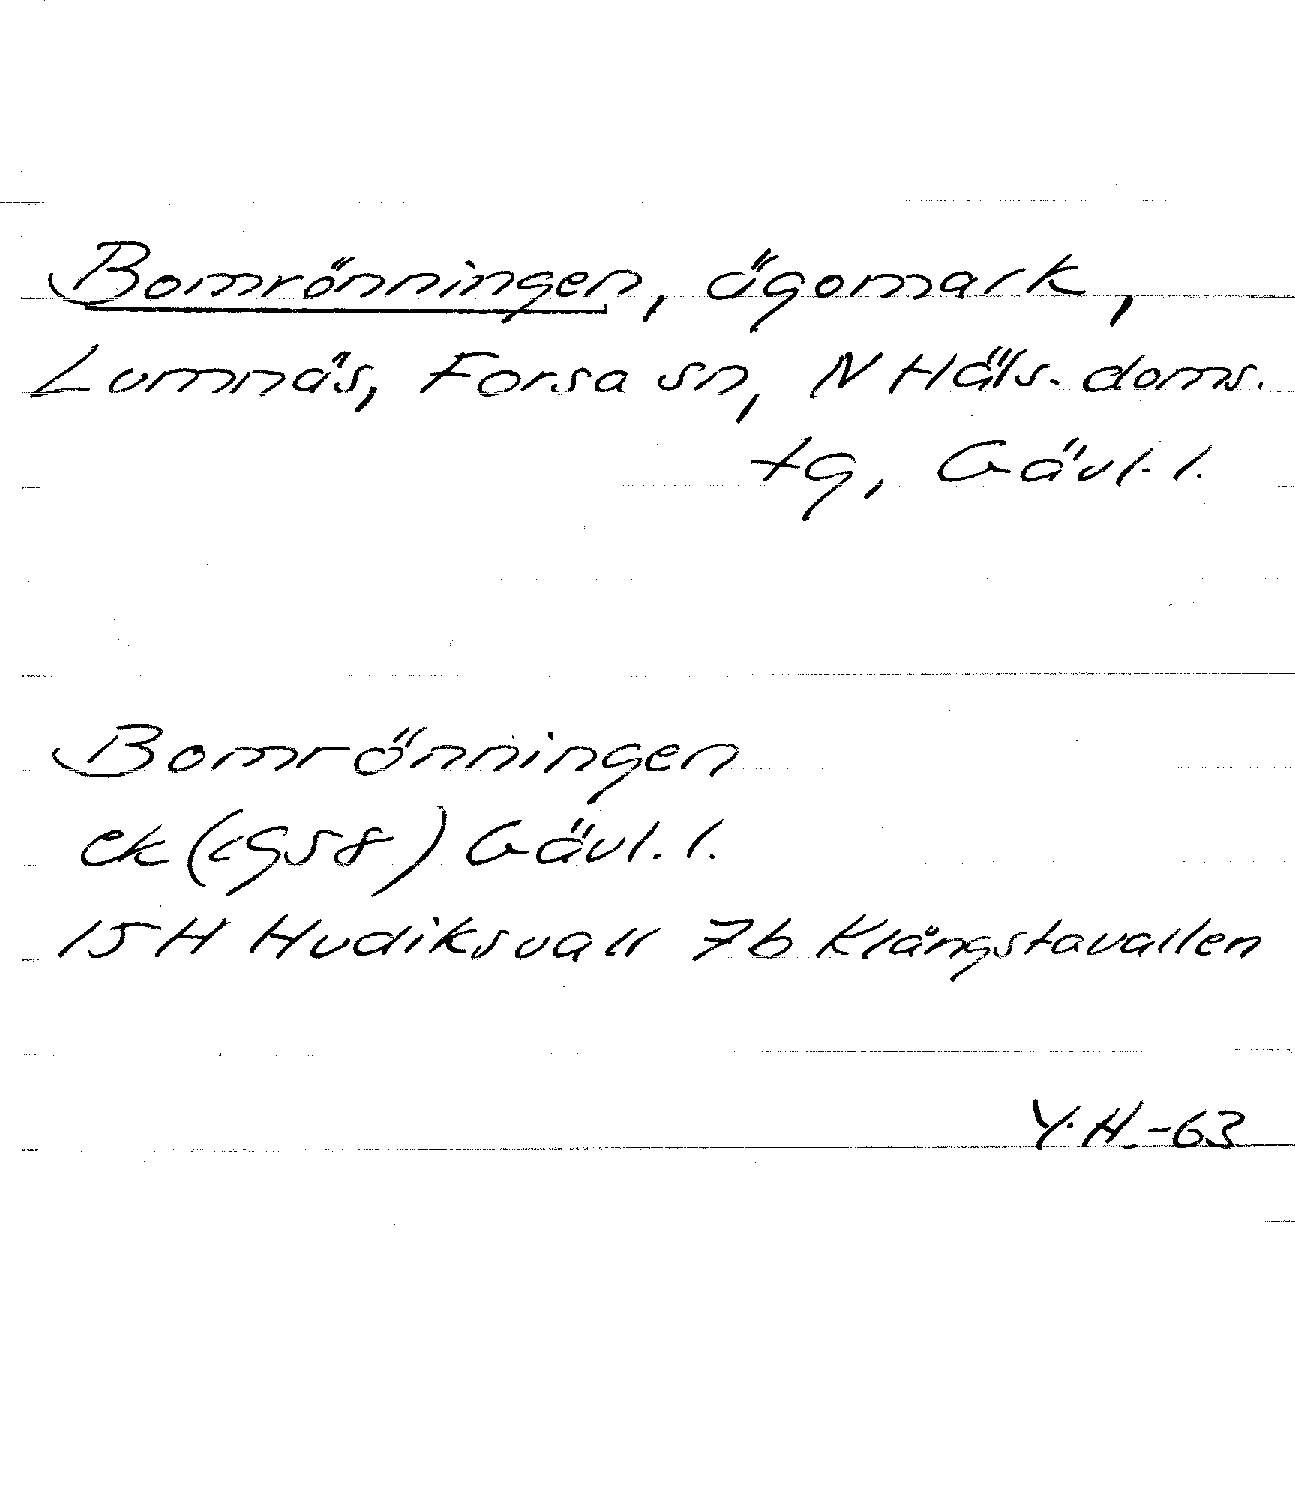 Bomrönningen, ägomark,
Lumnäs, Forsa sn, N Häls. doms.
tg, Gävl. l.
Bomrönningen
ek (1958) Gävl. l.
15H Hudiksvall 7b Klångstavallen
Y.H.-63